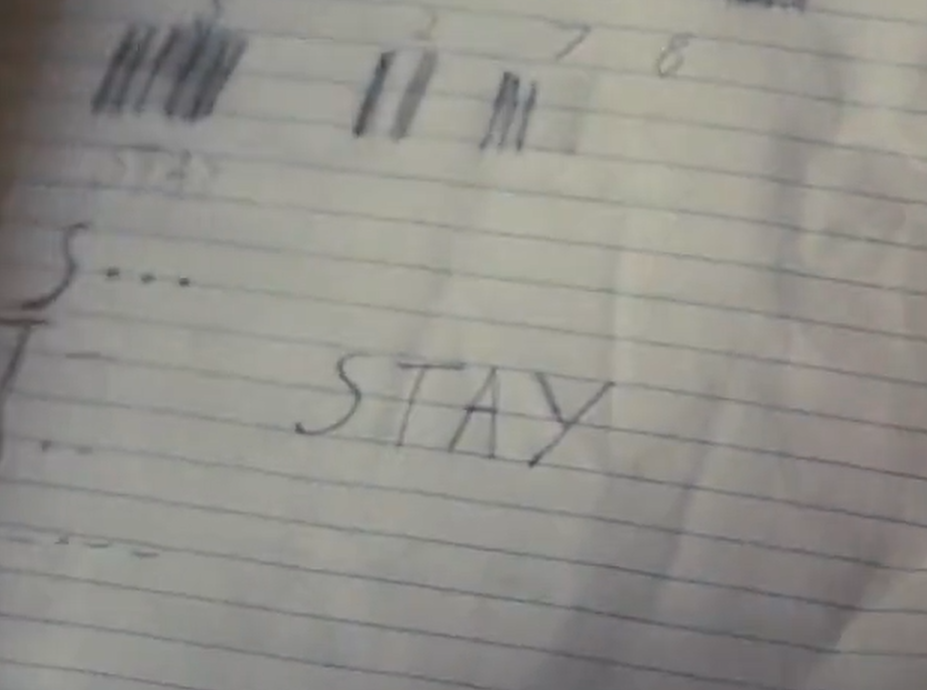 7 8
STAY
S ...
T -
STAY
.-
-.--